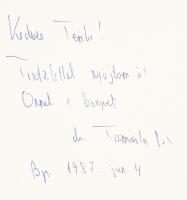 Kedves Teri!
Tisztelettel nyújtom át
Önnek e könyvet
dr.
Bp. 1987. jun. 4